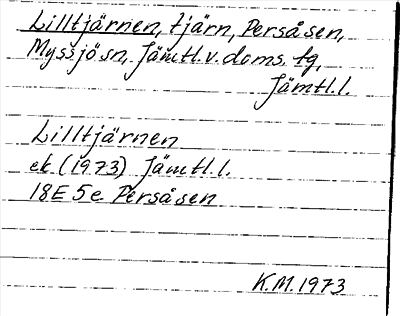 Lilltjärnen, tjärn, Persåsen,
Myssjö sn, Jämtl. v. doms. tg,
Jämtl. l.
Lilltjärnen
ek (1973) Jämtl. l.
18E 5e Persåsen
K.M. 1973